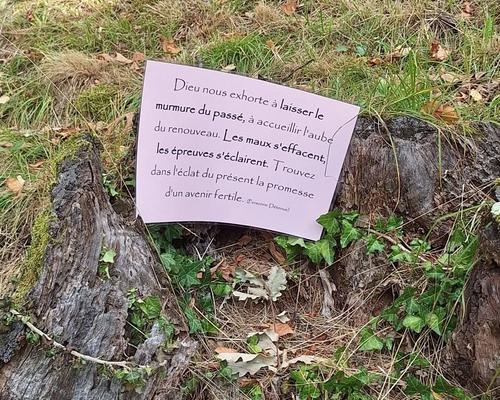 Dieu nous exhorte à laisser le
murmure du passé, à accueillir l'aube
du renouveau. Les maux s'effacent,
les épreuves s'éclairent. Trouvez
dans l'éclat du présent la promesse
d'un avenir fertile.